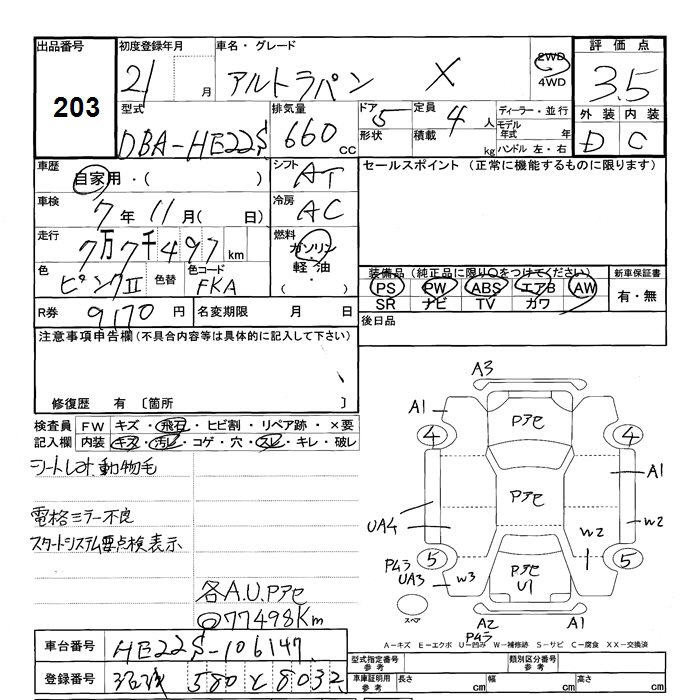 出品番号 初度登録年月 車名・グレード 評価点
203 21 月 アルトラパン X 2WD 4WD 3.5
型式 排気量 ドア 5 定員 4 人 ディーラー・並行 外装 内装
DBA-HE22S 660 cc 形状 積載 kg モデル年式 年 ハンドル 左・右 D C
車歴 自家用・( ) シフト AT セールスポイント (正常に機能するものに限ります)
車検 7年 11月( 日) 冷房 AC
走行 7万7千497km 燃料 ガソリン 軽油 ( ・ )
色 ピンクII 色替 色コード FKA
装備品 (純正品に限り○をつけてください) 新車保証書
PS PW ABS エアB AW 有・無
SR ナビ TV カワ
R券 9170 円 名変期限 月 日 後日品
注意事項申告欄(不具合内容等は具体的に記入して下さい)
修復歴 有 〔箇所 〕
検査員 FW キズ・飛石・ヒビ割・リペア跡・×要
記入欄 内装 キズ・汚レ・コゲ・穴・スレ・キレ・破レ
シートレオ、動物毛
電格ミラー不良
スタートシステム要点検表示
各A.U.Pアセ
77498Km
A3
A1 Pアセ
4 4
Pアセ A1
UA4 W2
W2
5 5
Pムラ UA3 W3 Pアセ U1
スペア A2 Pムラ A1
A-キズ E-エクボ U-凹み W-補修跡 S-サビ C-腐食 XX-交換済
車台番号 HE22S-106147
型式指定番号 参考 類別区分番号 参考
登録番号 580 8032
車庫証明用 参考 長さ cm 幅 cm 高さ cm